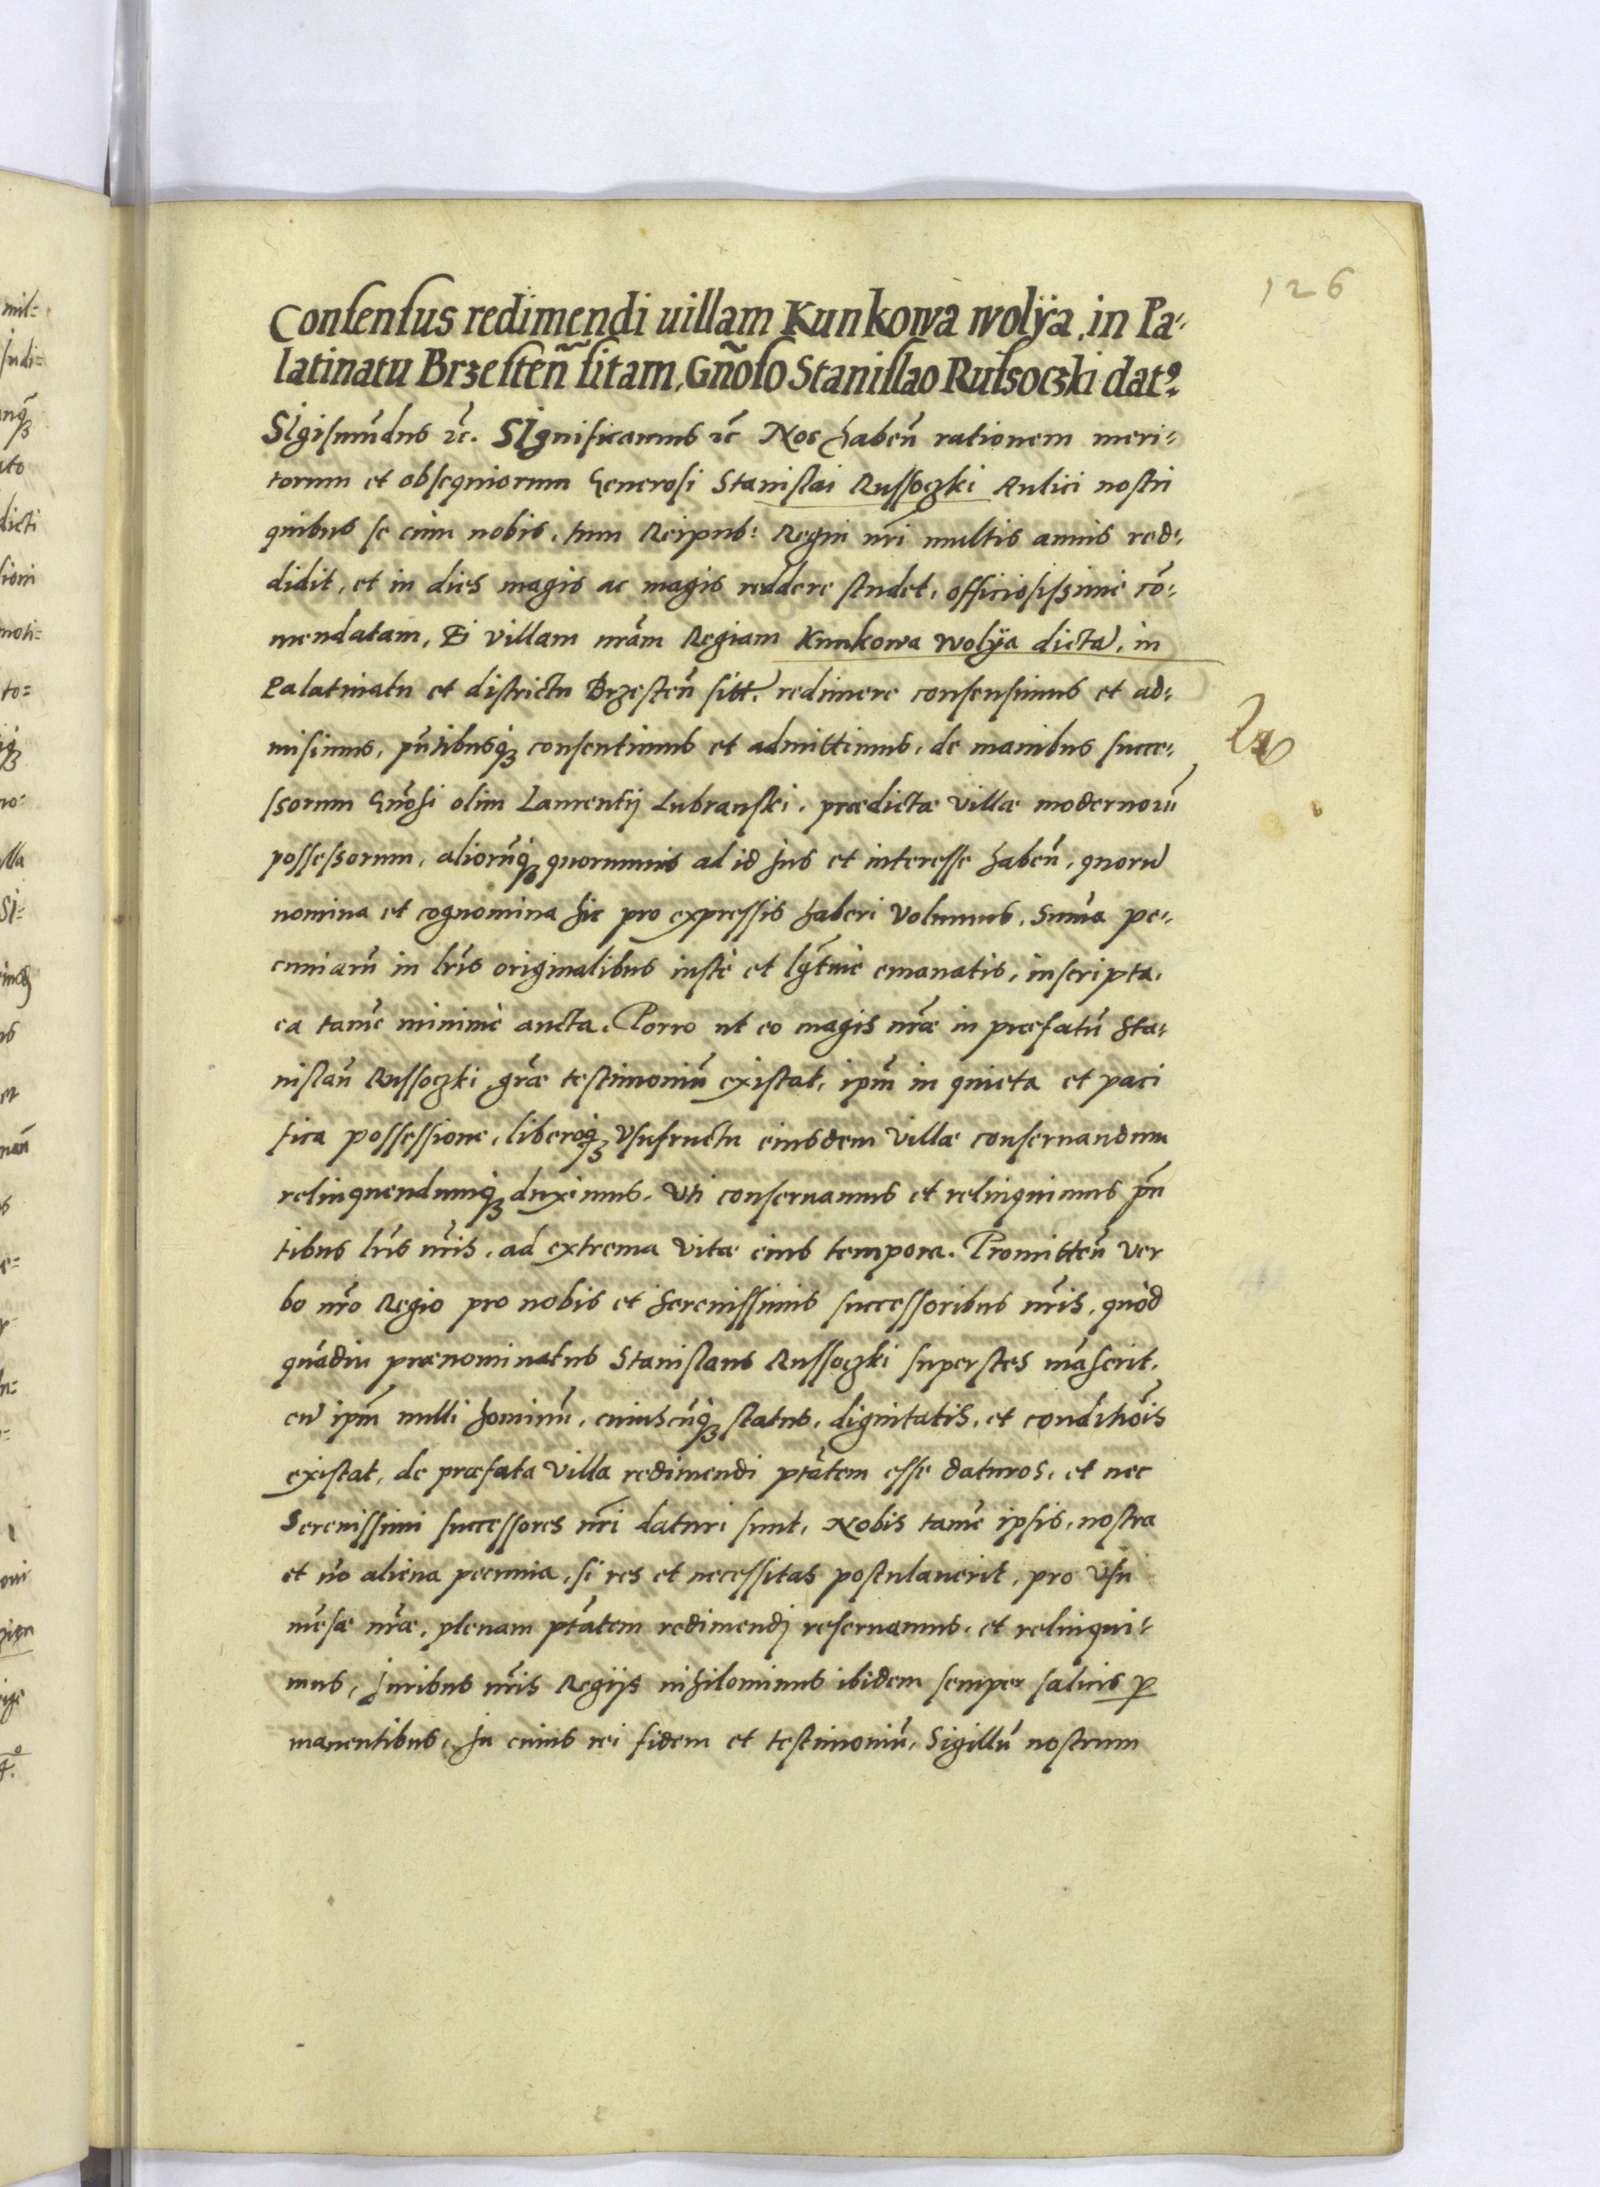 126
Consensus redimendi uillam Kunkowa wolÿa, in Pa-
latinatu Brzesteñ sitam, Gñoso Stanislao Russoczki datꝰ.
Sigismūdus ꝛc. Significamus ꝛc Nos habeñ rationem meri-
torum et obsequiorum Generosi Stanislai Russoczki Aulici nostri
quibus se cum nobis, tum Reipub: Regni nrĩ multis annis red-
didit, et in dies magis ac magis reddere studet, officiosissimè cō-
mendatam, Ei villam nrãm Regiam Kunkowa wolÿa dictã, in
Palatinatu et districtu Brzesteñ sitã, redimere consensimus et ad-
misimus, pñtibusqꝫ consentimus et admittimus, de manibus succe-
ssorum Gñosi olim Laurentij Lubranski, prædictæ villæ modernorũ
possessorum, aliorũqꝫ quorumuis ad id Jus et interesse habeñ, quorũ
nomina et cognomina hic pro expressis haberi volumus, Summa pe-
cuniarũ in lrĩs originalibus iustè et lgt̃mè emanatis, inscripta,
ea tamẽ minimè aucta. Porro ut eo magis nrãe in præfatũ Sta-
nislaũ Russoczki grãe testimoniũ existat, ipm̃ in quieta et paci
fica possessione, liberoqꝫ vsufructu eiusdem villæ conseruandum
relinquendumqꝫ duximus, vti conseruamus et relinquimus pñ
tibus lrĩs nrĩs, ad extrema vitæ eius tempora. Promitteñ ver
bo nrõ Regio pro nobis et Serenissimis successoribus nrĩs, quòd
quãdiu prænominatus Stanislaus Russoczki superstes mãserit,
eũ ipm̃ nulli hominũ, cuiuscũqꝫ status, dignitatis, et conditiõis
existat, de præfata villa redimendi ptãtem esse daturos, et nec
Serenissimi successores nrĩ daturi sunt, Nobis tamẽ ipsis, nostra
et nõ aliena pecunia, si res et necessitas postulauerit, pro vsu
mẽsæ nrãe, plenam ptãtem redimendi reseruamus, et relinqui-
mus, Juribus nrĩs Regijs nihilominus ibidem semper saluis ꝑ
manentibus, In cuius rei fidem et testimoniũ, Sigillũ nostrum